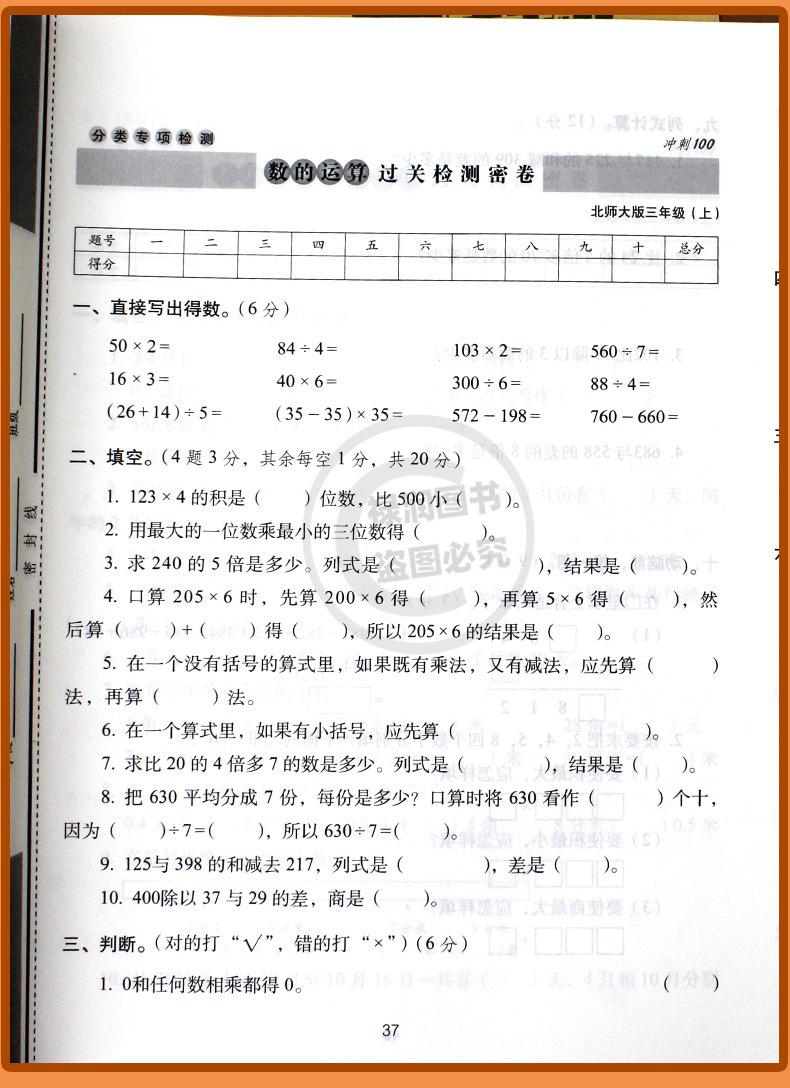 分类专项检测
冲刺100
数的运算过关检测密卷
北师大版三年级(上)
题号 一 二 三 四 五 六 七 八 九 十 总分
得分
一、直接写出得数。(6分)
50×2= 84÷4= 103×2= 560÷7=
16×3= 40×6= 300÷6= 88÷4=
(26+14)÷5= (35-35)×35= 572-198= 760-660=
二、填空。(4题3分，其余每空1分，共20分)
1. 123×4的积是( )位数，比500小( )。
2. 用最大的一位数乘最小的三位数得( )。
3. 求240的5倍是多少。列式是( )，结果是( )。
4. 口算205×6时，先算200×6得( )，再算5×6得( )，然
后算( )+( )得( )，所以205×6的结果是( )。
5. 在一个没有括号的算式里，如果既有乘法，又有减法，应先算( )
法，再算( )法。
6. 在一个算式里，如果有小括号，应先算( )。
7. 求比20的4倍多7的数是多少。列式是( )，结果是( )。
8. 把630平均分成7份，每份是多少？口算时将630看作( )个十，
因为( )÷7=( )，所以630÷7=( )。
9. 125与398的和减去217，列式是( )，差是( )。
10. 400除以37与29的差，商是( )。
三、判断。(对的打“√”，错的打“×”)(6分)
1. 0和任何数相乘都得0。 ( )
37
班级
姓名
密封线
图书
盗图必究